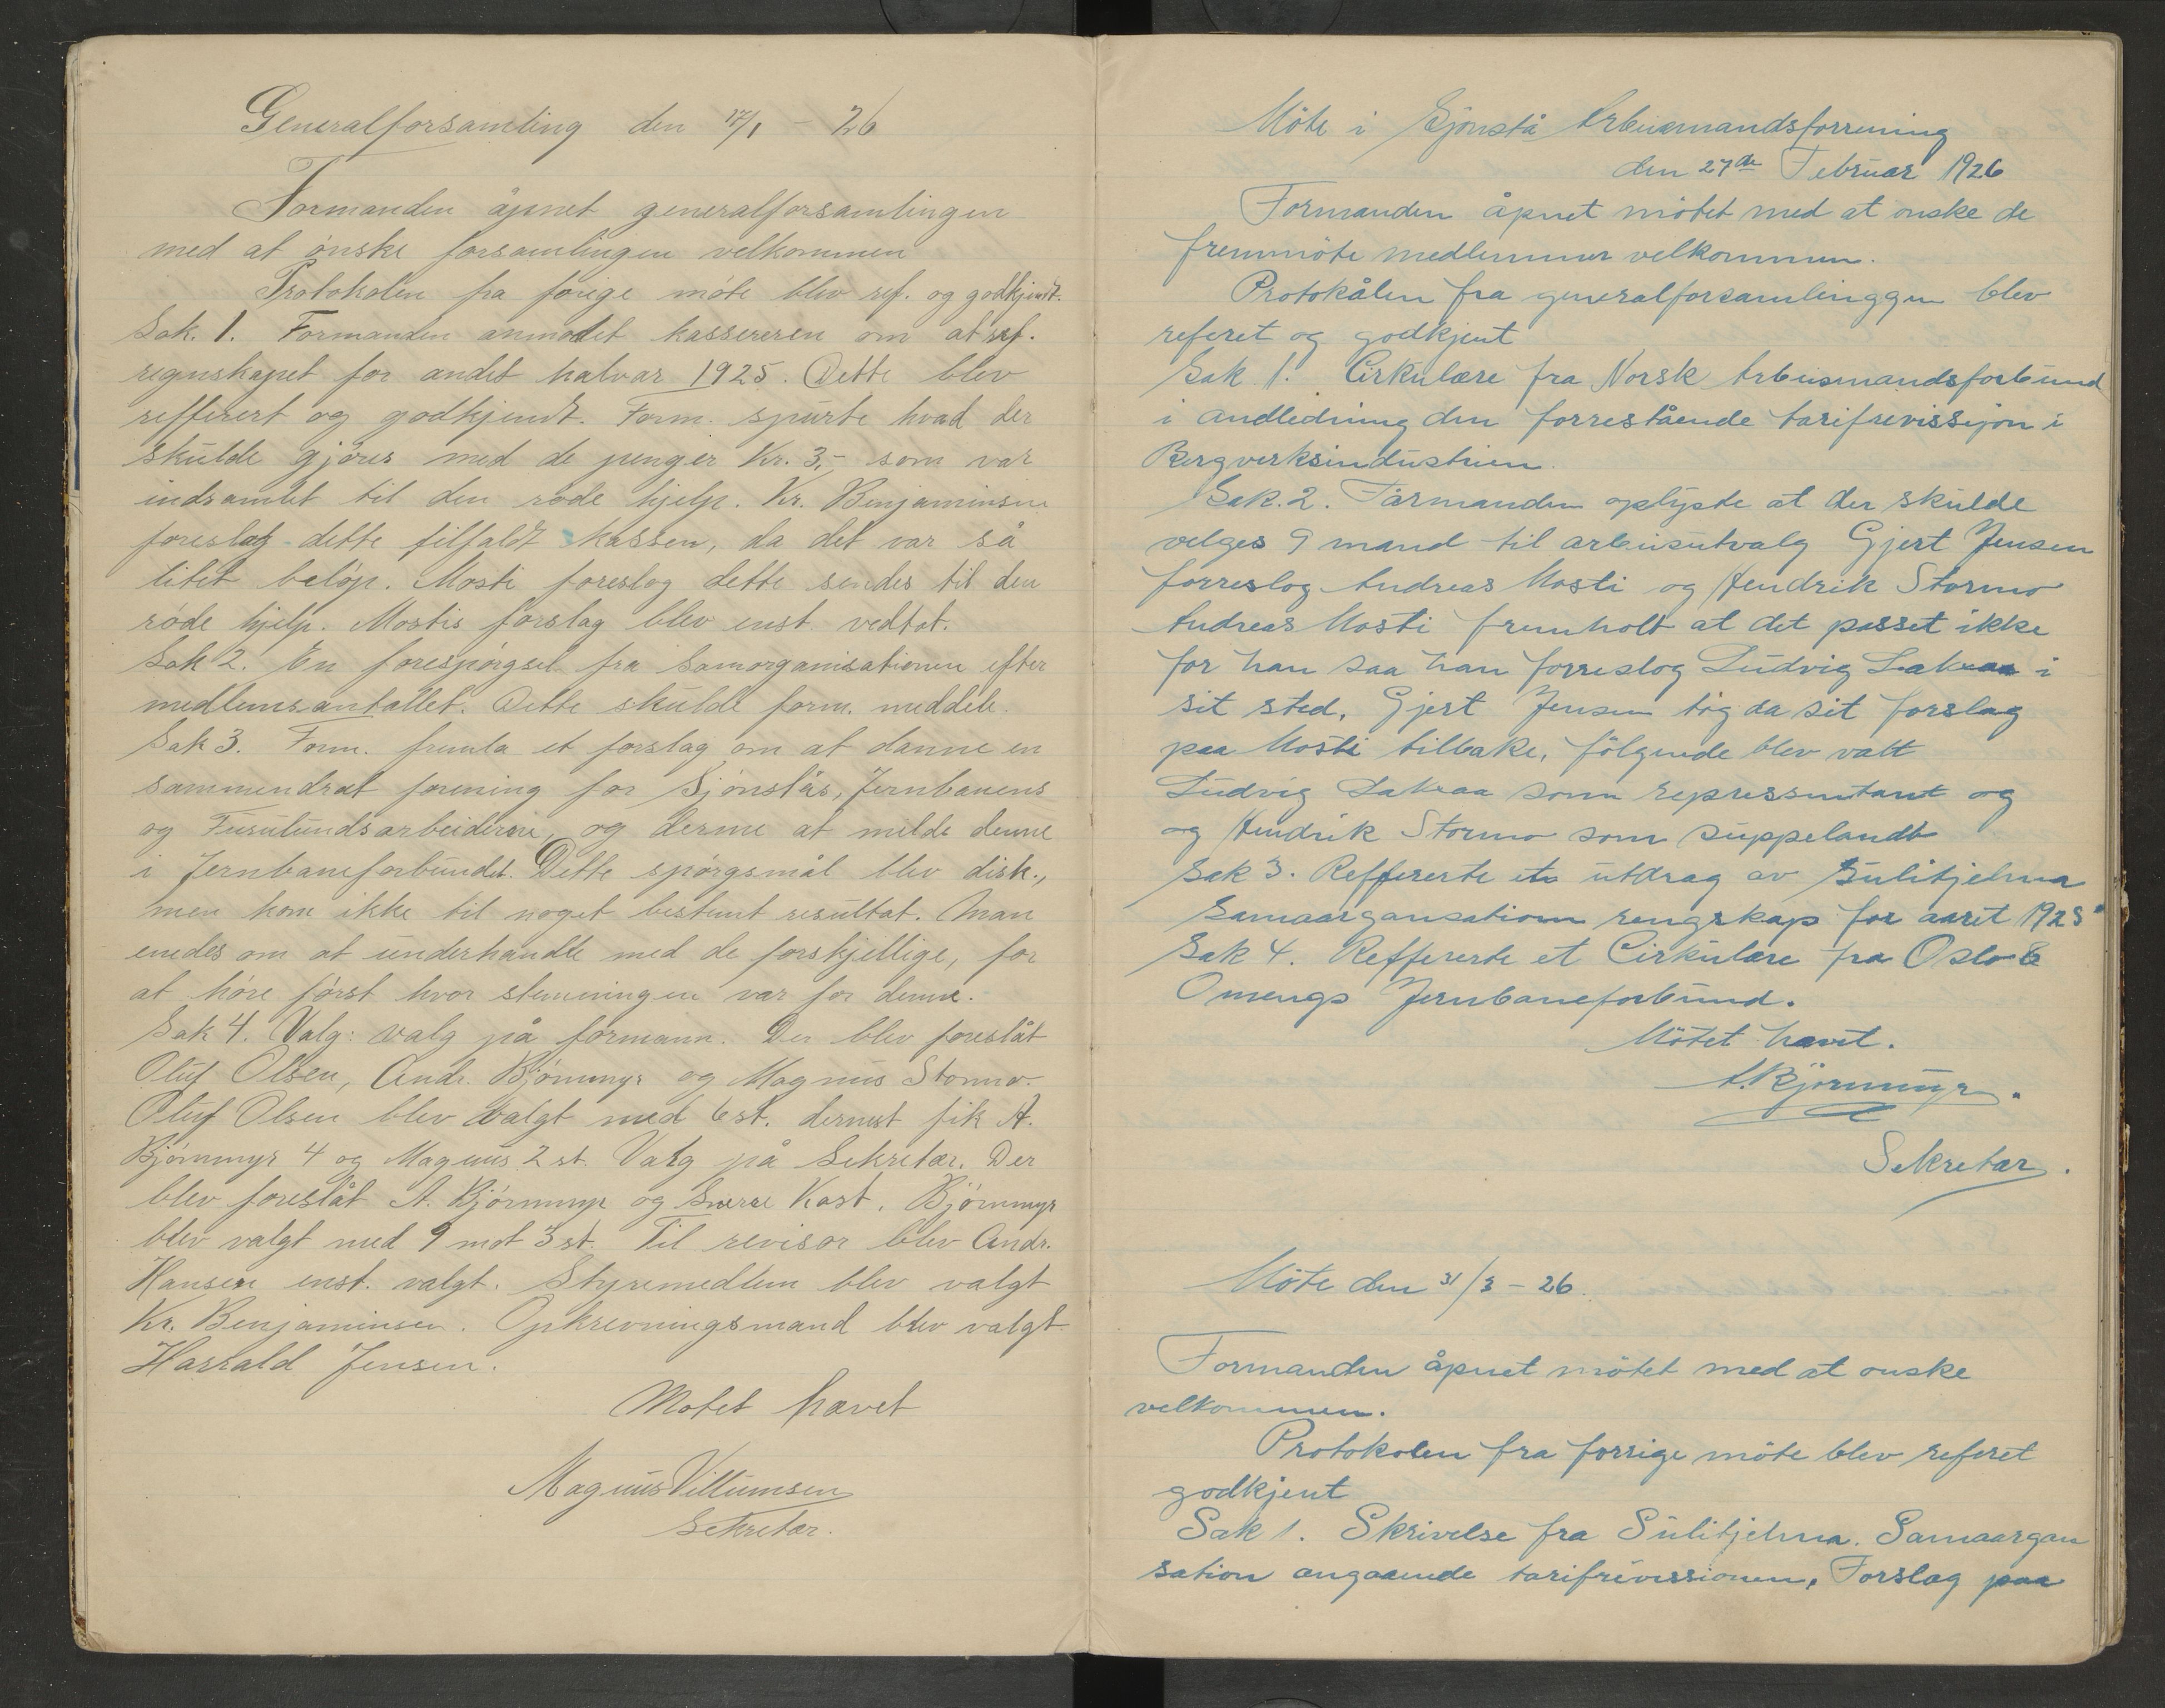 Generalforsamling den 17/1 - 26
Formanden åpnet generalforsamlingen
med at ønske forsamlingen velkommen
Protokolen fra forige møte blev ref. og godkjendt.
Sak. 1. Formanden anmodet kassereren om at ref.
regnskapet for andet halvar 1925. Dette blev
refferert og godkjendt. Form. spurte hvad der
skulde gjøres med de penger Kr. 3,- som var
indsamlet til den røde hjelp. Kr. Benjaminsen
foreslog dette tilfaldt kassen, da det var så
litet beløp. Mosti foreslog dette sendes til den
røde hjelp. Mostis forslag blev enst. vedtat.
Sak 2. En forespørgsel fra Samorganisationen efter
medlemsantallet. Dette skulde form. meddele.
Sak 3. Form. fremla et forslag om at danne en
sammendrat forening for Sjønstås, Jernbanens
og Furulundsarbeiderne, og derme at melde denne
i Jernbaneforbundet. Dette spørgsmål blev disk.,
men kom ikke til noget bestemt resultat. Man
enedes om at underhandle med de forskjellige, for
at høre først hvor stemningen var for denne.
Sak 4. Valg: valg på formann. Der blev foreslåt
Oluf Olsen, Andr. Bjørnmyr og Magnus Stormo.
Oluf Olsen blev valgt med 6 st. dernest fik A.
Bjørnmyr 4 og Magnus 2 st. Valg på Sekretær. Der
blev foreslåt A. Bjørnmyr og Sverre Kast. Bjørnmyr
blev valgt med 9 mot 3 st. Til revisor blev Andr.
Hansen enst. valgt. Styremedlem blev valgt
Kr. Benjaminsen. Opkrevningsmand blev valgt
Harrald Jensen.
Møtet hævet
Magnus Villumsen
Sekretær.
Møte i Sjønstå Arbeismandsforrening
den 27de Februar 1926
Formanden åpnet møtet med at ønske de
fremmøte medlemmer velkommen.
Protokålen fra generalforsamlinggen blev
referet og godkjent
Sak 1. Cirkulære fra Norsk Arbeismandsforbund
i andledning den forrestående tarifrevissjon i
Bergverksindustrien.
Sak. 2. Formanden oplyste at der skulde
velges 9 mand til arbeisutvalg Gjert Jensen
forreslog Andreas Mosti og Hendrik Stormo
Andreas Mosti fremholt at det passet ikke
for han saa han forreslog Ludvig Lakaa i
sit sted. Gjert Jensen tog da sit forslag
paa Mosti tilbake, følgende blev valt
Ludvig Lakaa som repressentant og
og Hendrik Stormo som suppelandt
Sak 3. Reffererte et utdrag av Sulitjelma
Samaargansationen rengskap for aaret 1925
Sak 4. Reffererte et Cirkulære fra Oslo &
Omengs Jernbaneforbund.
Møtet hævt.
A. Bjørnmyr.
Sekretær.
Møte den 31/3 - 26.
Formanden åpnet møtet med at ønske
velkommen.
Protokolen fra forrige møte blev referet
godkjent
Sak 1. Skrivelse fra Sulitjelma. Samaargan
sation angaaende tarifrevissionen. Forslag paa